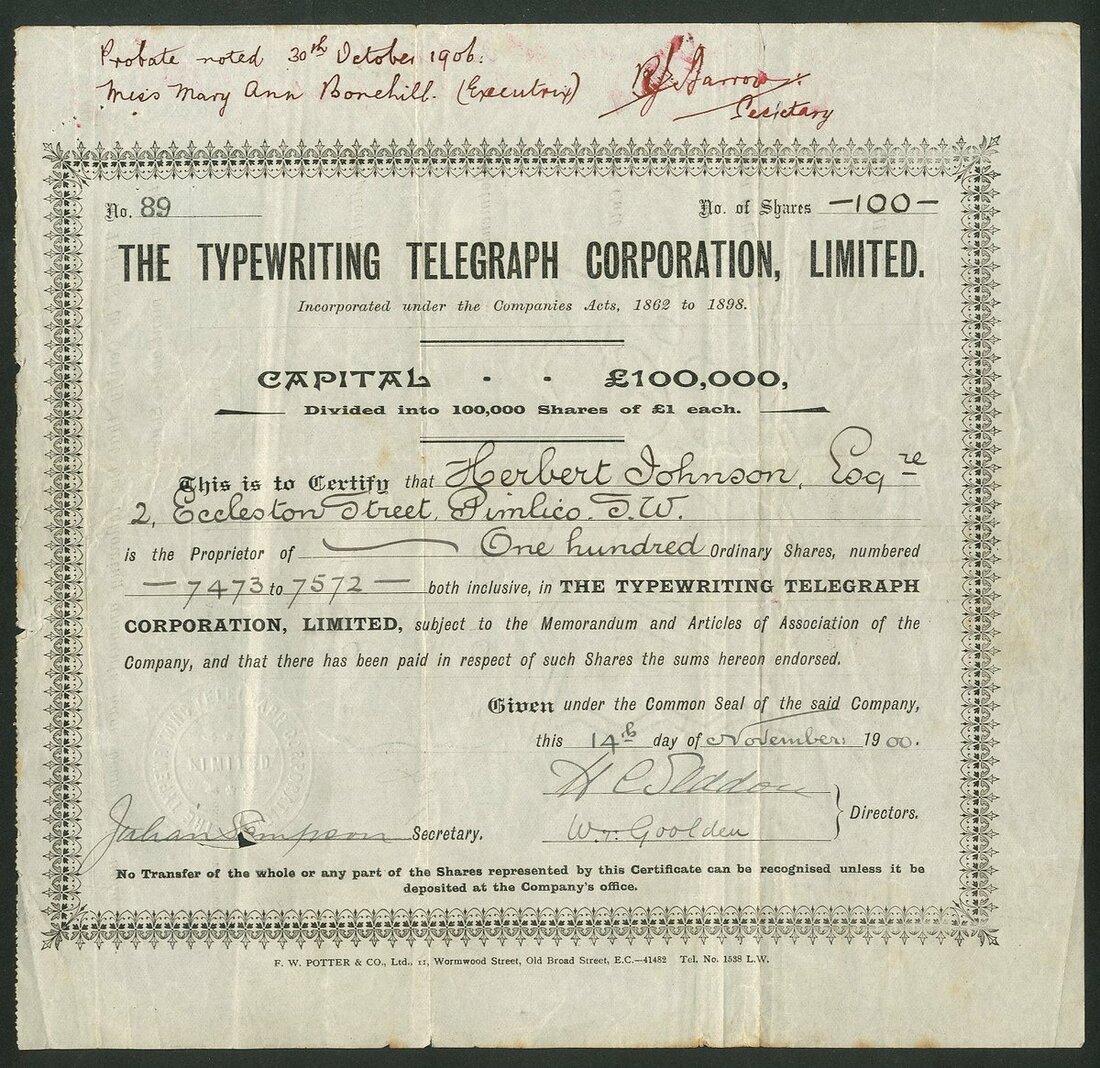 Probate noted 30th October 1906.
Miss Mary Ann Bonehill. (Executrix)
Barrow
Secretary
No. 89
No. of Shares —100—
THE TYPEWRITING TELEGRAPH CORPORATION, LIMITED.
Incorporated under the Companies Acts, 1862 to 1898.
CAPITAL - - £100,000,
Divided into 100,000 Shares of £1 each.
This is to Certify that Herbert Johnson, Esqre
2, Eccleston Street, Pimlico. S.W.
is the Proprietor of One hundred Ordinary Shares, numbered
— 7473 to 7572 — both inclusive, in THE TYPEWRITING TELEGRAPH
CORPORATION, LIMITED, subject to the Memorandum and Articles of Association of the
Company, and that there has been paid in respect of such Shares the sums hereon endorsed.
Given under the Common Seal of the said Company,
this 14th day of November 1900.
H C Seddon
Julian Sampson Secretary.
Wr. Goolden
Directors.
No Transfer of the whole or any part of the Shares represented by this Certificate can be recognised unless it be
deposited at the Company's office.
F. W. POTTER & CO., Ltd., 11, Wormwood Street, Old Broad Street, E.C.—41482 Tel. No. 1538 L.W.